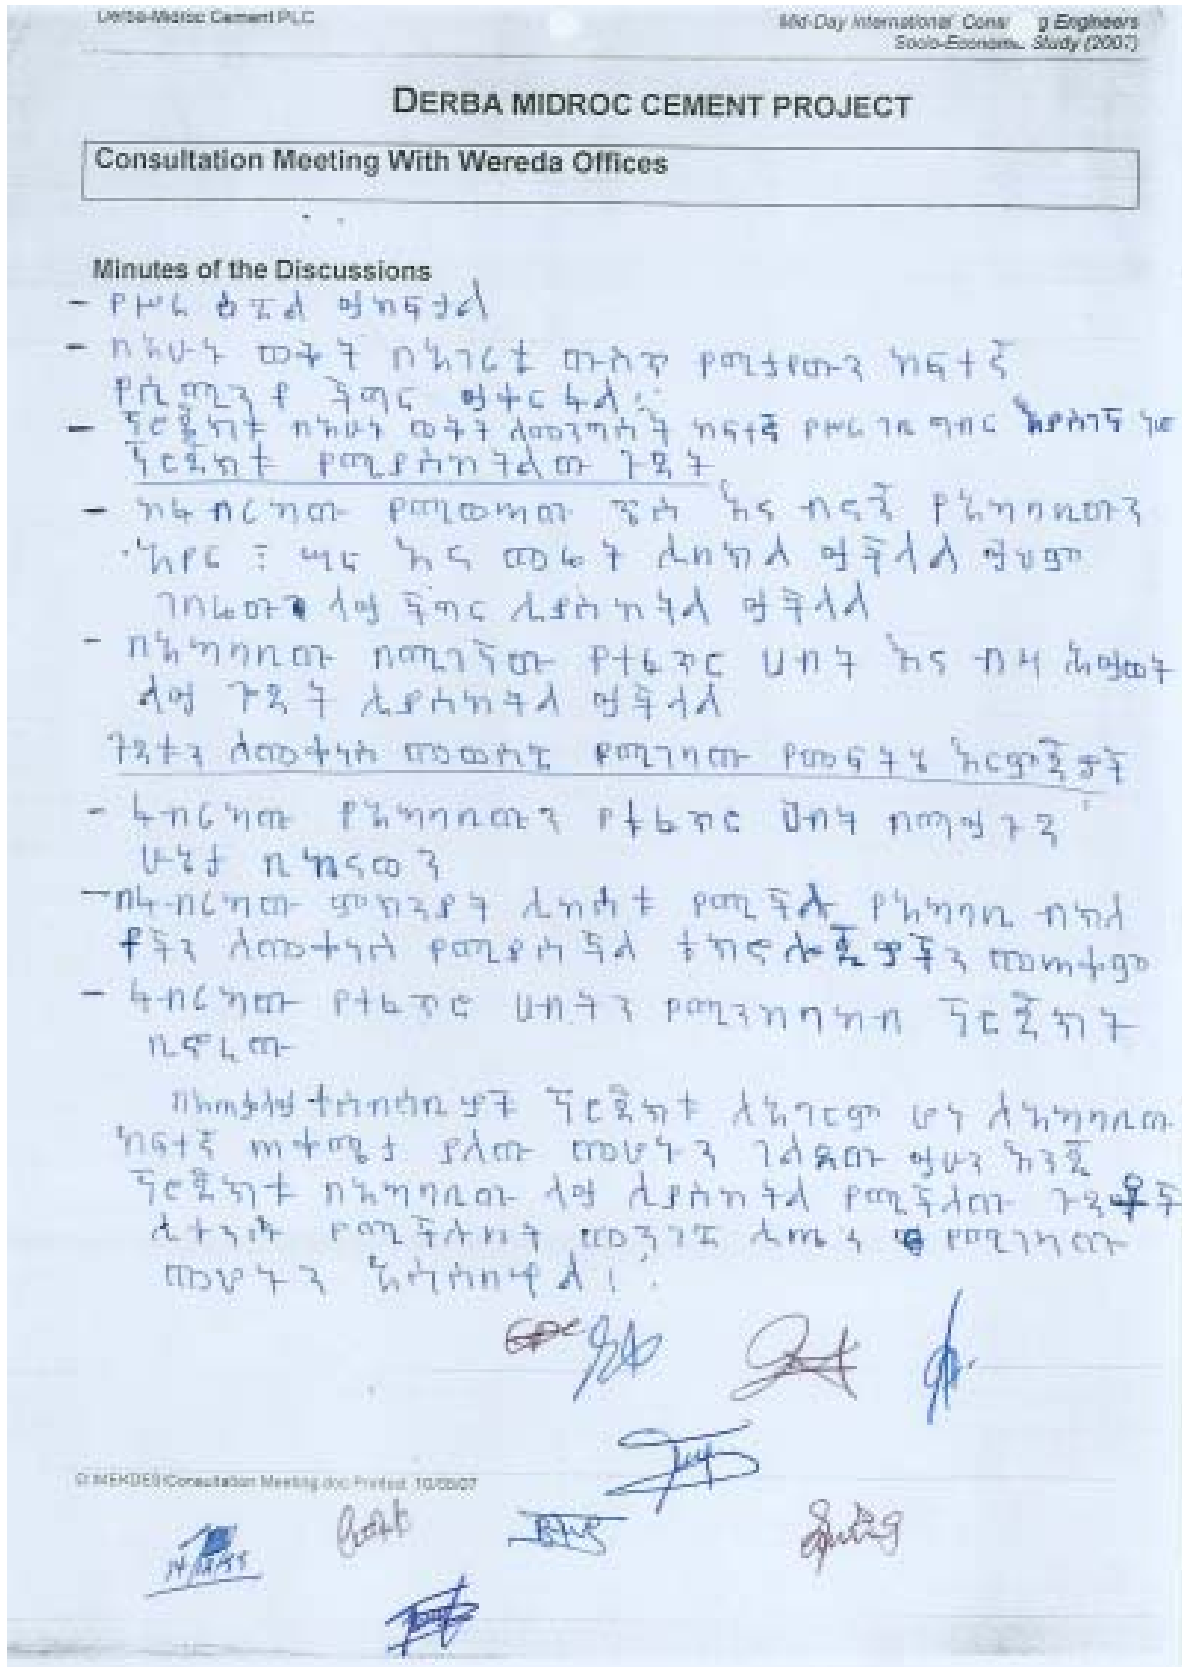 Derba-Midroc Cement PLC
Mid-Day International Cons g Engineers
Socio-Economic Study (2007)
DERBA MIDROC CEMENT PROJECT
Consultation Meeting With Wereda Offices
Minutes of the Discussions
- የሥራ ዕድል ይከፍታል
- በአሁኑ ወቅት በአገሪቷ ውስጥ የሚታየውን ከፍተኛ
የሲሚንቶ ችግር ይቀርፋል
- ፕሮጀክቱ በአሁኑ ወቅት ለመንግስት ከፍተኛ የሥራ ግብር
ፕሮጀክቱ የሚያስከትለው ጉዳት
- ከፋብሪካው የሚወጣው ጭስ እና ብናኝ የአካባቢውን
አየር ፣ ሣር እና መሬት ሊበክል ይችላል ይህም
ገበሬውን ላይ ችግር ሊያስከትል ይችላል
- በአካባቢው በሚገኘው የተፈጥሮ ሀብት እና ብዛ ሕይወት
ላይ ጉዳት ሊያስከትል ይችላል
ጉዳቱን ለመቀነስ መወሰድ የሚገባው የመፍትሄ እርምጃዎች
- ፋብሪካው የአካባቢውን የተፈጥሮ ሀብት በማይጎዳ
ሁኔታ ቢከናወን
- በፋብሪካው ምክንያት ሊከሰቱ የሚችሉ የአካባቢ ብክለ
ቶችን ለመቀነስ የሚያስችል ቴክኖሎጂዎችን መጠቀም
- ፋብሪካው የተፈጥሮ ሀብትን የሚንከባከብ ፕሮጀክት
ቢኖረው
በአጠቃላይ ተሰብሳቢዎች ፕሮጀክቱ ለአገርም ሆነ ለአካባቢው
ከፍተኛ ጠቀሜታ ያለው መሆኑን ገልጸው ይሁን እንጂ
ፕሮጀክቱ በአካባቢው ላይ ሊያስከትል የሚችለው ጉዳቶች
ሊቀንሱ የሚችሉበት መንገድ የሚገባው
መሆኑን አሳስበዋል ፡፡
Consultation Meeting.doc Printed 10/05/07